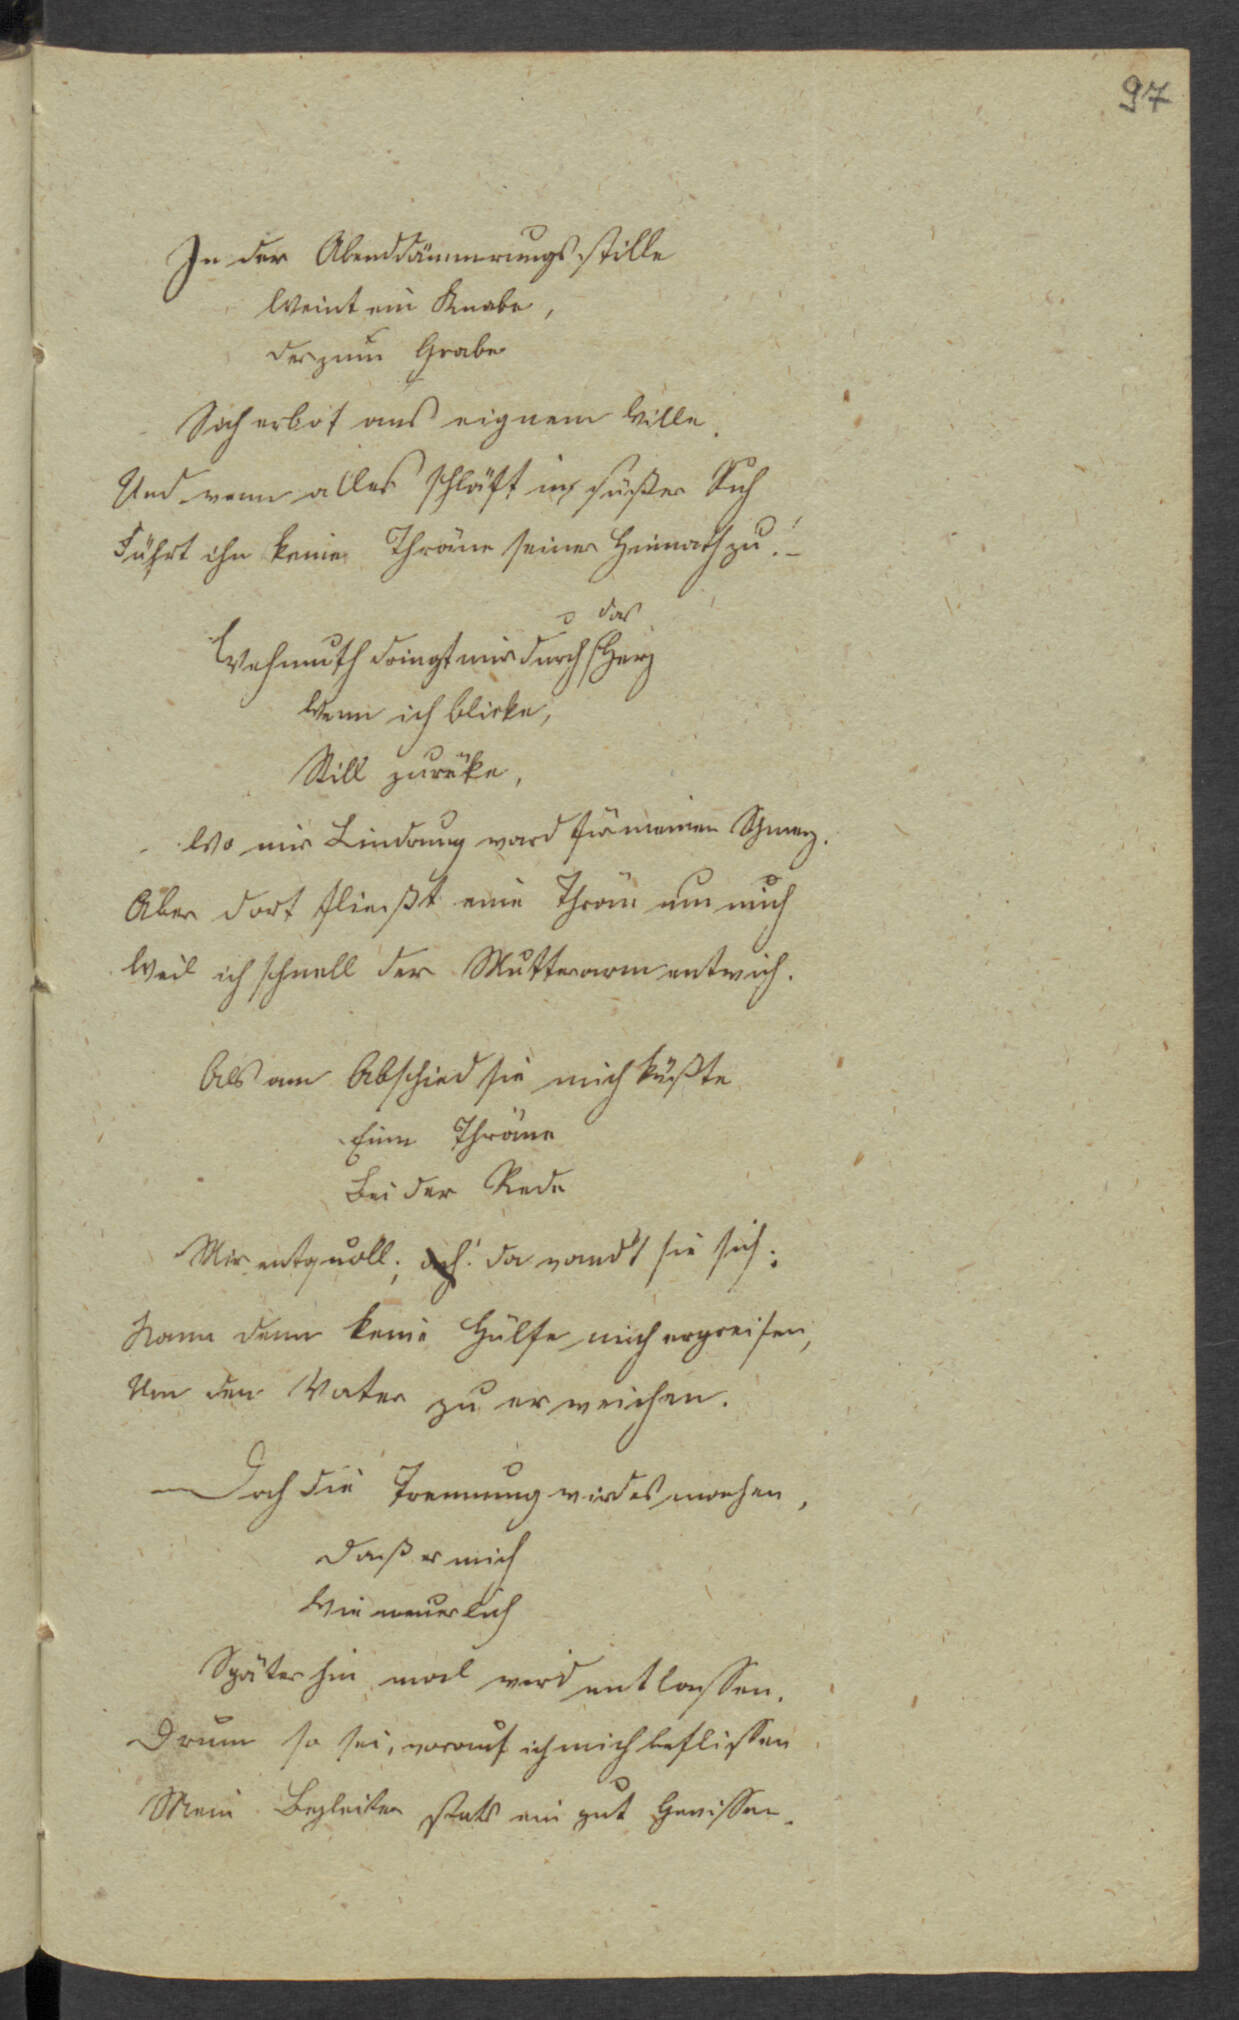 97
In der Abenddämmerungsstille
Weint ein Knabe,
der zum Grabe
Sich erbot aus eignem Wille.
Und wenn alles schläft in süßer Ruh
Führt ihn keine Thräne seiner Heimath zu! –
das
Wehmuth dringt mir durch Herz
Wenn ich blicke,
Still zurüke,
Wo mir Lindrung ward für meinen Schmerz.
Aber dort fließt eine Thrän um mich
Weil ich schnell der Mutterarm entwich.
Als am Abschied sie mich küßte
Eine Thräne
Bei der Rede
Mir entquoll; ach! da wandt sie sich;
Kann denn keine Hülfe mich ergreifen,
Um den Vater zu erweichen.
Doch die Trennung wird es machen,
Daß er mich
Wie neuerlich
Späterhin mal wird entlassen.
Drum so sei, worauf ich mich beflissen
Mein Begleiter stets ein gut Gewissen.